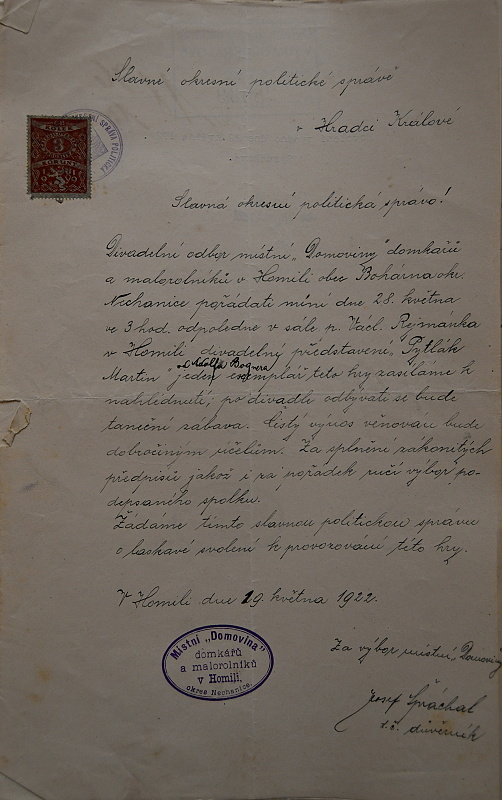 Slavné okresní politické správě
v Hradci Králové
KOLEK
3
KORUNY
SPRÁVA POLITICKÁ
Slavná okresní politická správo!
Divadelní odbor místní „Domoviny" domkářů
a malorolníků v Homíli obec Bohárna okr.
Nechanice pořádati míní dne 28. května
ve 3 hod. odpoledne v sále p. Václ. Rejmánka
v Homíli divadelný představení, Pytlák
od Adolfa Bognera
Martin" jeden exemplář této hry zasíláme k
nahlédnutí; po divadle odbývati se bude
taneční zábava. Čistý výnos věnován bude
dobročiným účelům. Za splnění zákonitých
předpisů jakož i za pořádek ručí výbor po-
depsaného spolku.
Žádáme tímto slavnou politickou správu
o laskavé svolení k provozování této hry.
V Homíli dne 19. května 1922.
Za výbor místní „Domoviny
Místní „Domovina"
domkářů
a malorolníků
v Homíli,
okres Nechanice.
Josef Špráchal
t.č. důvěrník